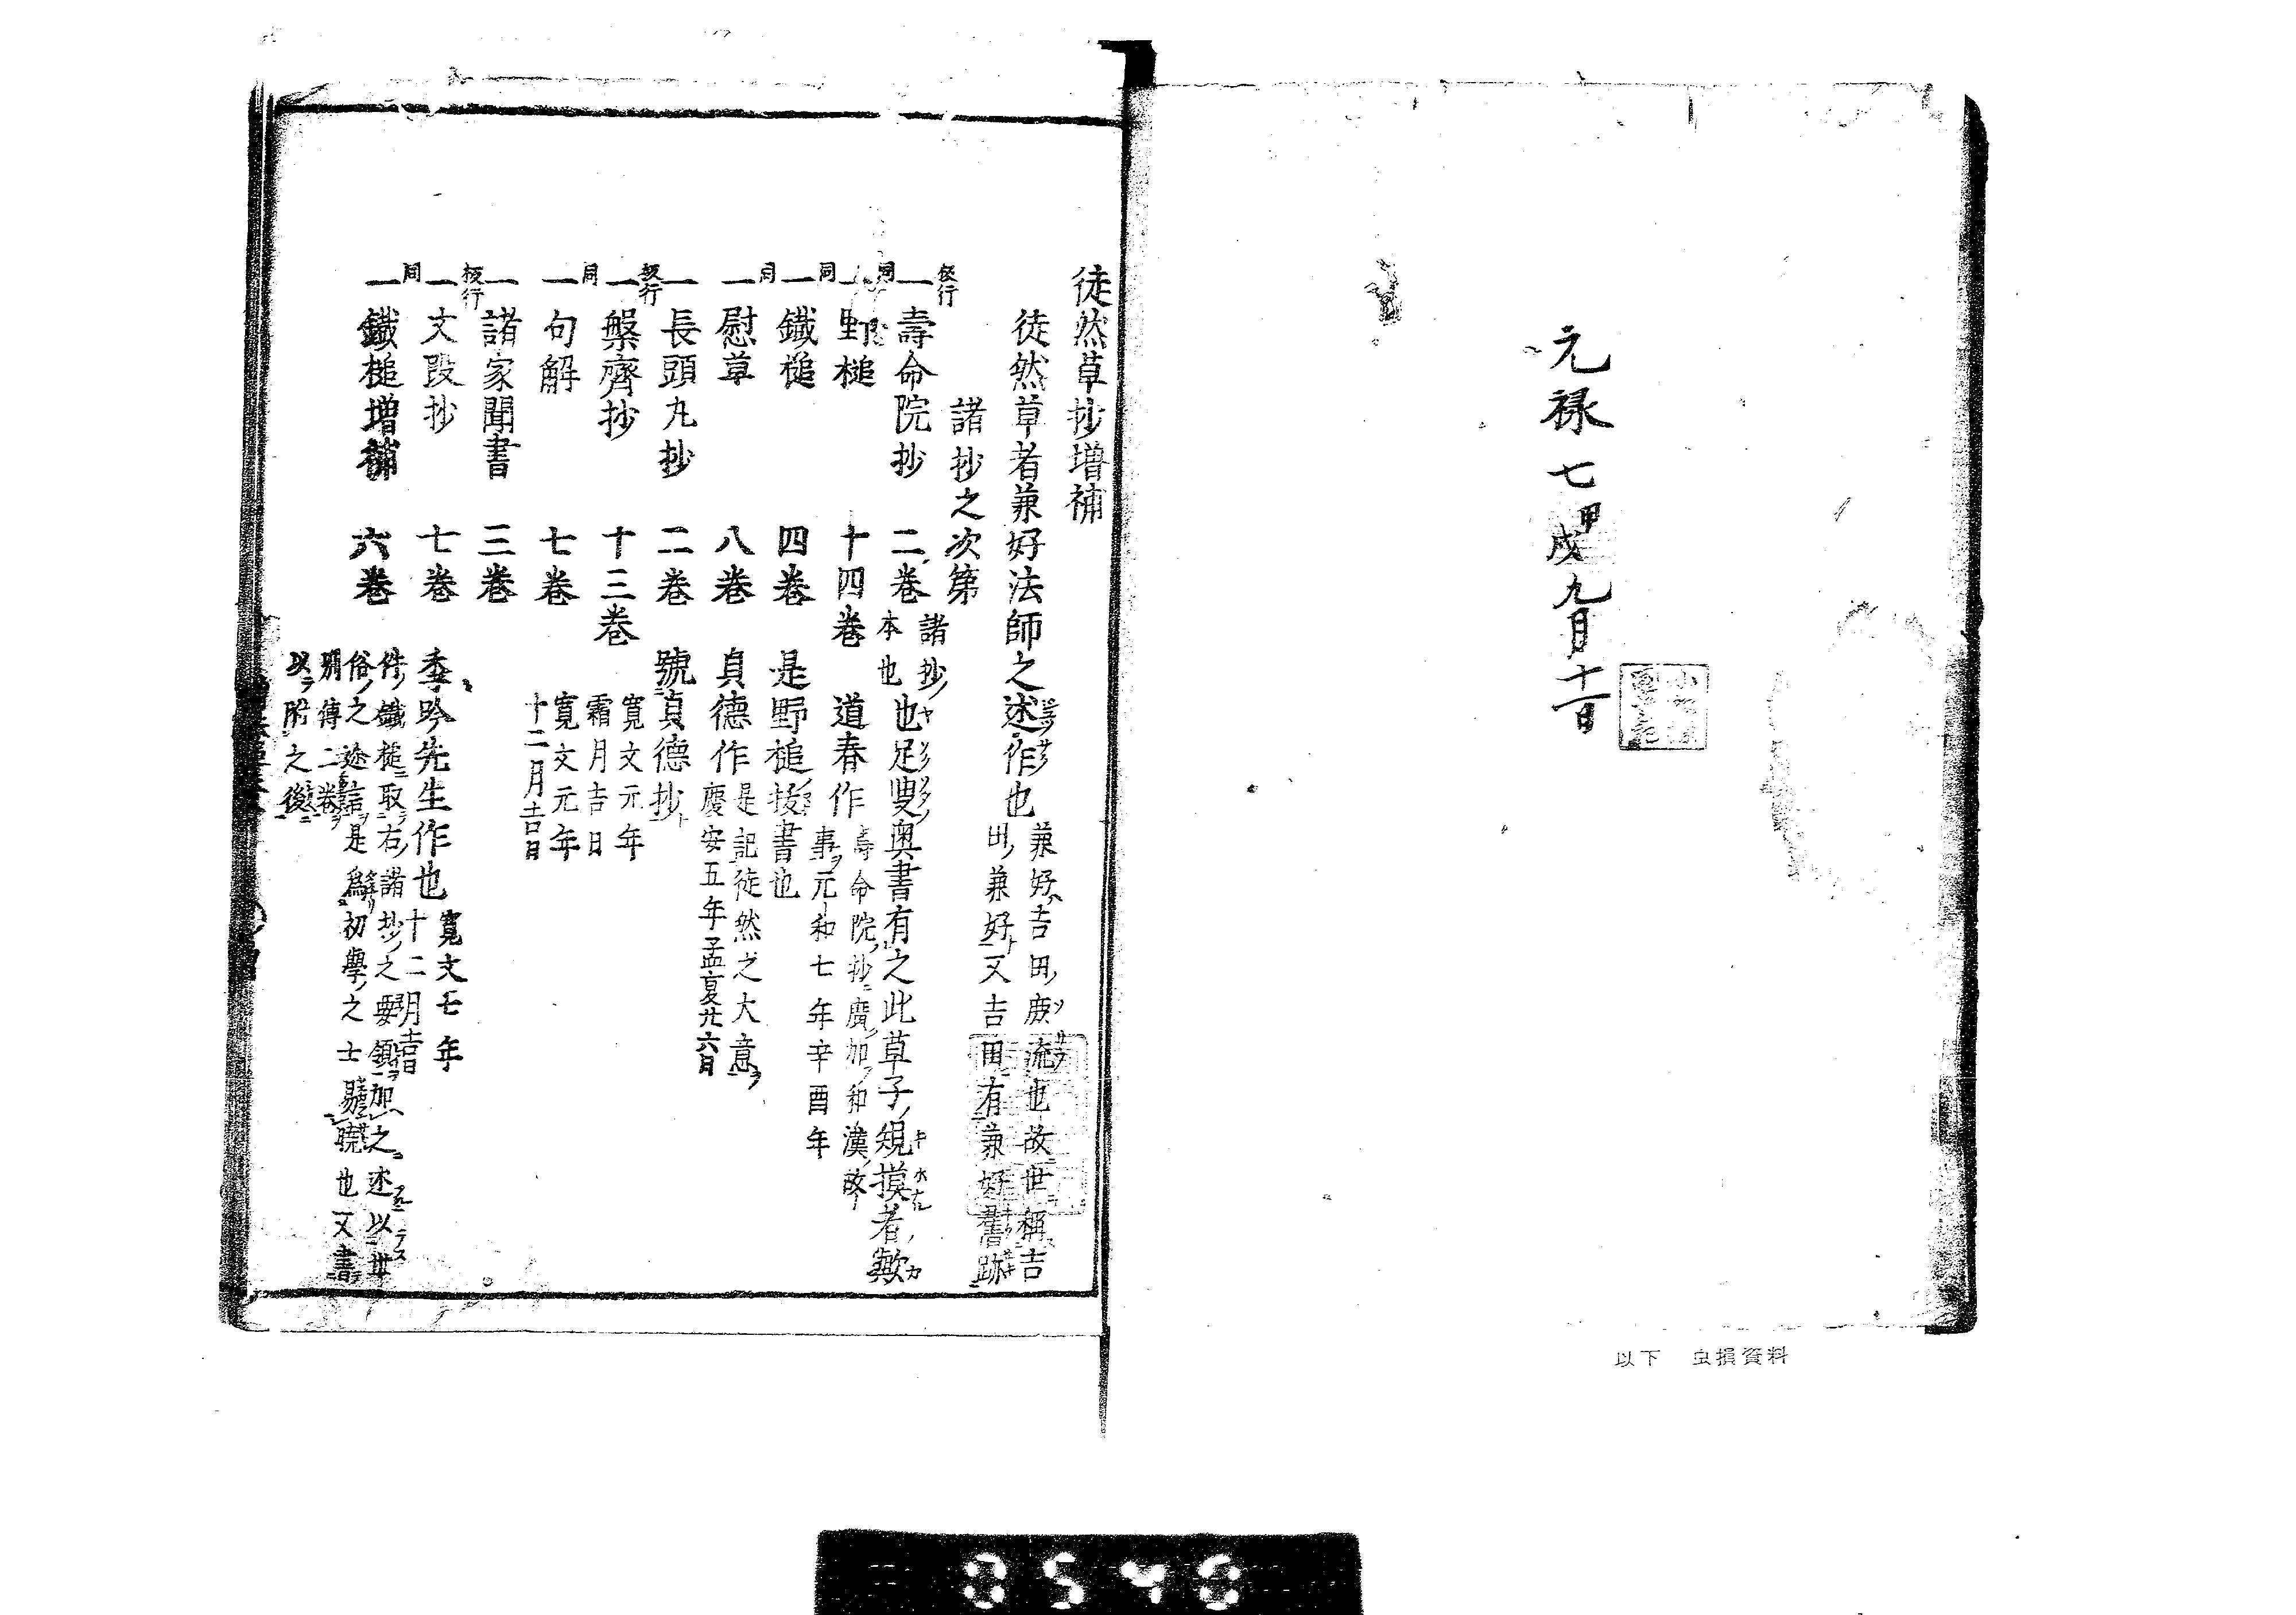 元禄七甲戌九月十一日
以下 虫損資料
徒然草抄増補
徒然草者兼好法師之述作也
兼好ハ吉田ノ庶流也故世稱吉
田ノ兼好ト又吉田有兼好舊跡
諸抄之次第
板行
一壽命院抄 二巻 諸抄ノ本也 也足叟奥書有之此草子ノ規摸者歟
同
一野槌 十四巻 道春作
壽命院ノ抄ニ廣ク加ヲ和漢ノ故
事ヲ元和七年辛酉年
同
一鐵槌 四巻 是野槌抜書也
同
一慰草 八巻 貞德作
是記徒然之大意ヲ
慶安五年孟夏廿六日
一長頭丸抄 二巻 號貞德抄ト
板行
一槃齊抄 十三巻
寛文元年
霜月吉日
同
一句解 七巻
寛文元年
十二月吉日
一諸家聞書 三巻
板行
一文段抄 七巻 季吟先生作也
寛文七年
十二月吉日
同
一鐵槌増補 六巻
件ノ鐵槌ニ取右ノ諸抄ノ之要領ヲ加之述以世
俗ノ之 是為初學ノ之士易曉也又書
別傳二巻ヲ
以テ附之後ニ
0546